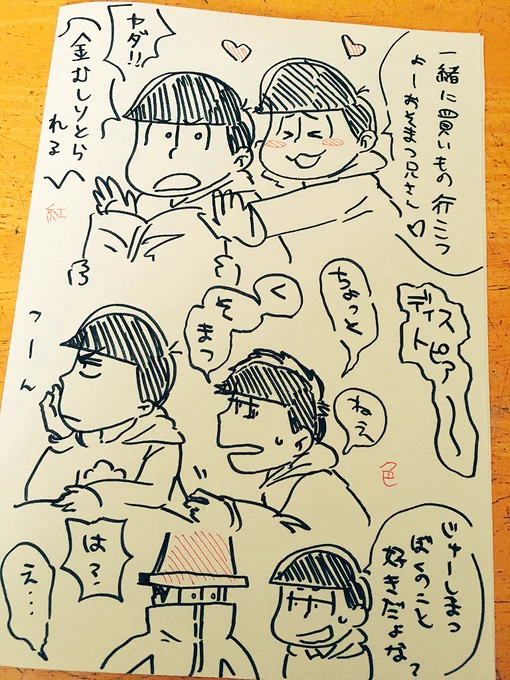 一緒に買いもの行こっ
よーおそまつ兄さん♡
ヤダ!!
金むしりとら
れる
紅
ディス
トピア
ちょっと
ねえ
く
そまつ
つーん
色
じゅーしまつ
ぼくのこと
好きだよな?
は?
え...